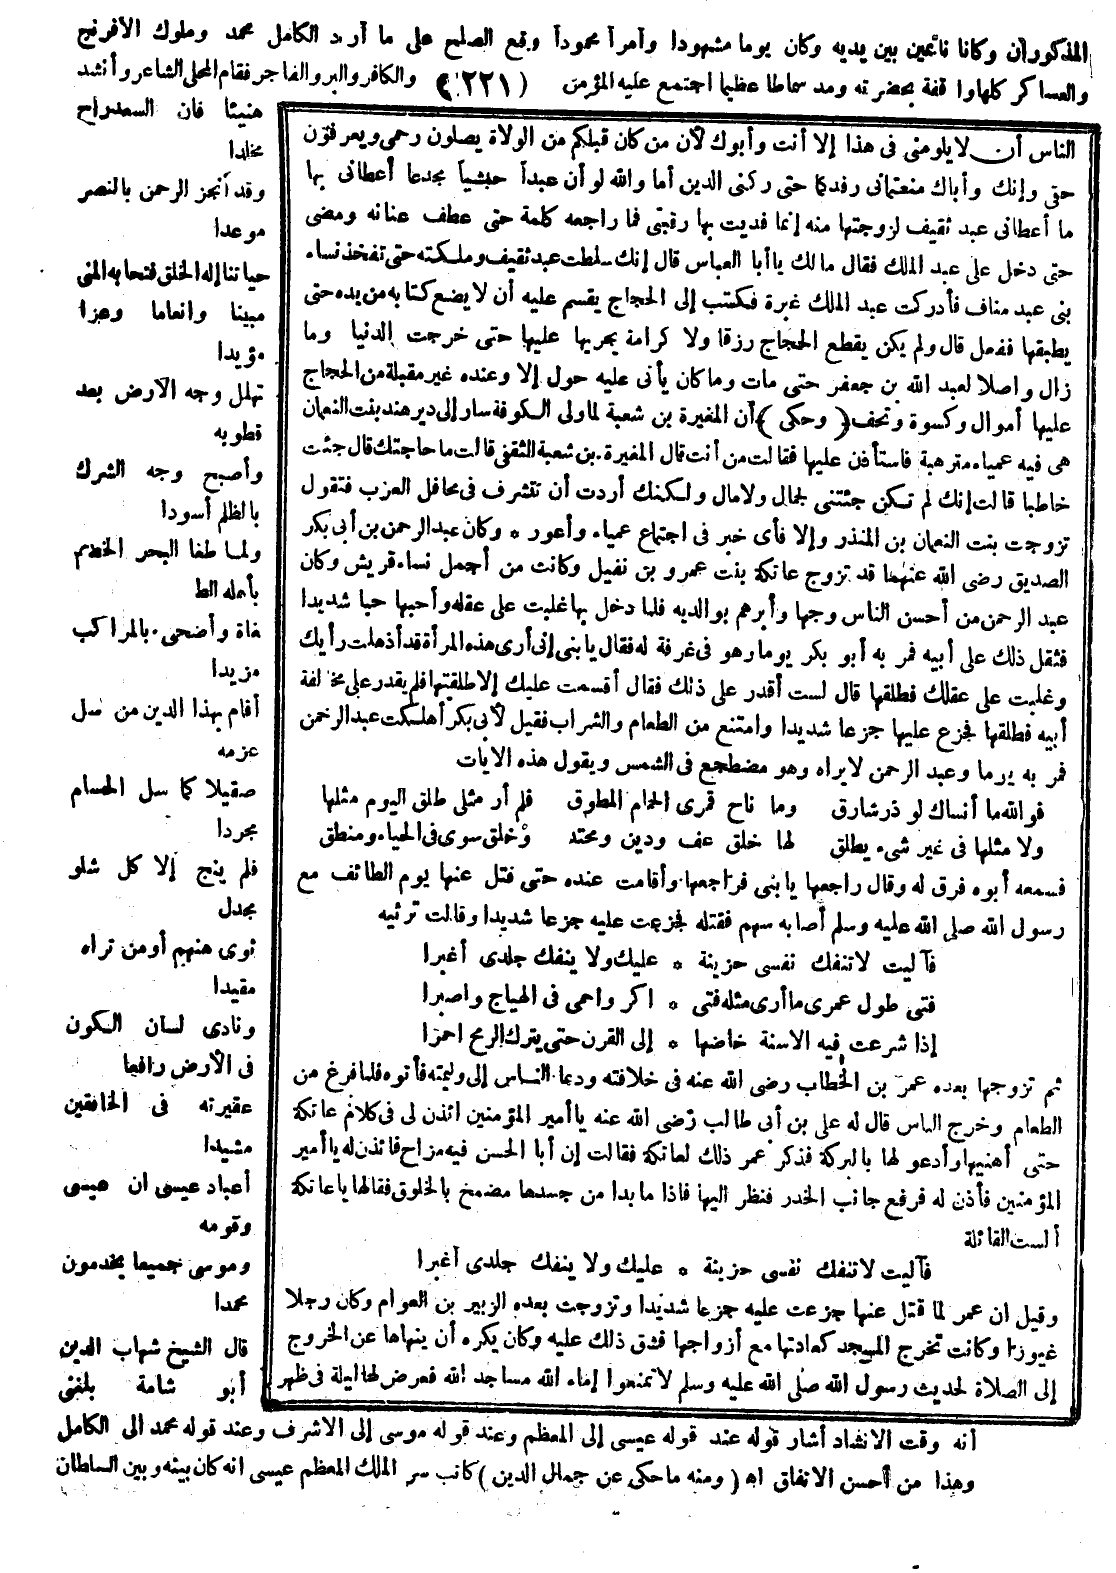 المذكوران وكانا نائمين بين يديه وكان يوما مشهودا وأمرا محمودا وقع الصلح على ما أراد الكامل محمد وملوك الافرنج
والعساكر كلها واقفة بحضرته ومد سماطا عظيما اجتمع عليه المؤمن (٢٢١) والكافر والبر والفاجر فقام المحلى الشاعر وأنشد
هنيئا فان السعد راح
مخلدا
وقد أنجز الرحمن بالنصر
موعدا
حيانا إله الخلق فتحا به المنى
مبينا وانعاما وعزا
مؤيدا
تهلل وجه الأرض بعد
قطوبه
وأصبح وجه الشرك
بالظلم أسودا
ولما طغا البحر الخضم
بأهله الط
غاة وأضحى بالمراكب
مزبدا
أقام بهذا الدين من سل
عزمه
صقيلا كما سل الحسام
مجردا
فلم ينج إلا كل شلو
مجدل
ثوى منهم أو من تراه
مقيدا
ونادى لسان الكون
فى الأرض رافعا
عقيرته فى الخافقين
مشيدا
أعباد عيسى ان عيسى
وقومه
وموسى جميعا يخدمون
محمدا
قال الشيخ شهاب الدين
أبو شامة بلغنى
الناس أن لا يلومنى فى هذا إلا أنت وأبوك لأن من كان قبلكم من الولاة يصلون رحمى ويعرفون
حقى وإنك وأباك منعتمانى رفدكما حتى ركبنى الدين أما والله لو أن عبدا حبشيا مجدعا أعطانى بها
ما أعطانى عبد ثقيف لزوجتها منه إنما فديت بها رقبتى فما راجعه كلمة حتى عطف عنانه ومضى
حتى دخل على عبد الملك فقال مالك يا أبا العباس قال إنك سلطت عبد ثقيف وملكته حتى تفخذ نساء
بنى عبد مناف فأدركت عبد الملك غيرة فكتب إلى الحجاج يقسم عليه أن لا يضع كتابه من يده حتى
يطلقها ففعل قال ولم يكن يقطع الحجاج رزقا ولا كرامة يجريها عليها حتى خرجت الدنيا وما
زال واصلا لعبد الله بن جعفر حتى مات وما كان يأتى عليه حول إلا وعنده غير مقبلة من الحجاج
عليها أموال وكسوة وتحف (وحكى) أن المغيرة بن شعبة لما ولى الكوفة سار إلى دير هند بنت النعمان
هى فيه عمياء مترهبة فاستأذن عليها فقالت من أنت قال المغيرة بن شعبة الثقفى قالت ما حاجتك قال جئت
خاطبا قالت إنك لم تكن جئتنى لجمال ولا مال ولكنك أردت أن تتشرف فى محافل العرب فتقول
تزوجت بنت النعمان بن المنذر وإلا فأى خبر فى اجتماع عمياء وأعور * وكان عبد الرحمن بن أبى بكر
الصديق رضى الله عنهما قد تزوج عاتكة بنت عمرو بن نفيل وكانت من أجمل نساء قريش وكان
عبد الرحمن من أحسن الناس وجها وأبرهم بوالديه فلما دخل بها غلبت على عقله وأحبها حبا شديدا
فثقل ذلك على أبيه فمر به أبو بكر يوما وهو فى غرفة له فقال يا بنى إنى أرى هذه المرأة قد أذهلت رأيك
وغلبت على عقلك فطلقها قال لست أقدر على ذلك فقال أقسمت عليك إلا طلقتها فلم يقدر على مخالفة
أبيه فطلقها فجزع عليها جزعا شديدا وامتنع من الطعام والشراب فقيل لأبى بكر أهلكت عبد الرحمن
فمر به يوما وعبد الرحمن لا يراه وهو مضطجع فى الشمس ويقول هذه الابيات
فوالله ما أنساك لو ذر شارق وما ناح قمرى الحمام المطوق فلم أر مثلى طلق اليوم مثلها
ولا مثلها فى غير شىء يطلق لها خلق عف ودين ومحتد وخلق سوى فى الحياء ومنطق
فسمعه أبوه فرق له وقال راجعها يا بنى فراجعها وأقامت عنده حتى قتل عنها يوم الطائف مع
رسول الله صلى الله عليه وسلم أصابه سهم فقتله فجزعت عليه جزعا شديدا وقالت ترثيه
فآليت لا تنفك نفسى حزينة * عليك ولا ينفك جلدى أغبرا
فتى طول عمرى ما أرى مثله فتى * اكر واحمى فى الهياج واصبرا
إذا شرعت فيه الاسنة خاضها * إلى القرن حتى يترك الرمح احمرا
ثم تزوجها بعده عمر بن الخطاب رضى الله عنه فى خلافته ودعا الناس إلى وليمته فأتوه فلما فرغ من
الطعام وخرج الناس قال له على بن أبى طالب رضى الله عنه يا أمير المؤمنين ائذن لى فى كلام عاتكة
حتى أهنيها وأدعو لها بالبركة فذكر عمر ذلك لعاتكة فقالت إن أبا الحسن فيه مزاح فائذن له يا أمير
المؤمنين فأذن له فرفع جانب الخدر فنظر اليها فاذا ما بدا من جسدها مضمخ بالخلوق فقال لها يا عاتكة
ألست القائلة
فآليت لا تنفك نفسى حزينة * عليك ولا ينفك جلدى أغبرا
وقيل ان عمر لما قتل عنها جزعت عليه جزعا شديدا وتزوجت بعده الزبير بن العوام وكان رجلا
غيورا وكانت تخرج المسجد كعادتها مع أزواجها فشق ذلك عليه وكان يكره أن ينهاها عن الخروج
إلى الصلاة لحديث رسول الله صلى الله عليه وسلم لا تمنعوا إماء الله مساجد الله فعرض لها ليلة فى ظهر
أنه وقت الانشاد أشار قوله عند قوله عيسى إلى المعظم وعند قوله موسى إلى الاشرف وعند قوله محمد الى الكامل
وهذا من أحسن الاتفاق اه (ومنه ما حكى عن جمال الدين) كاتب سر الملك المعظم عيسى انه كان بينه وبين السلطان